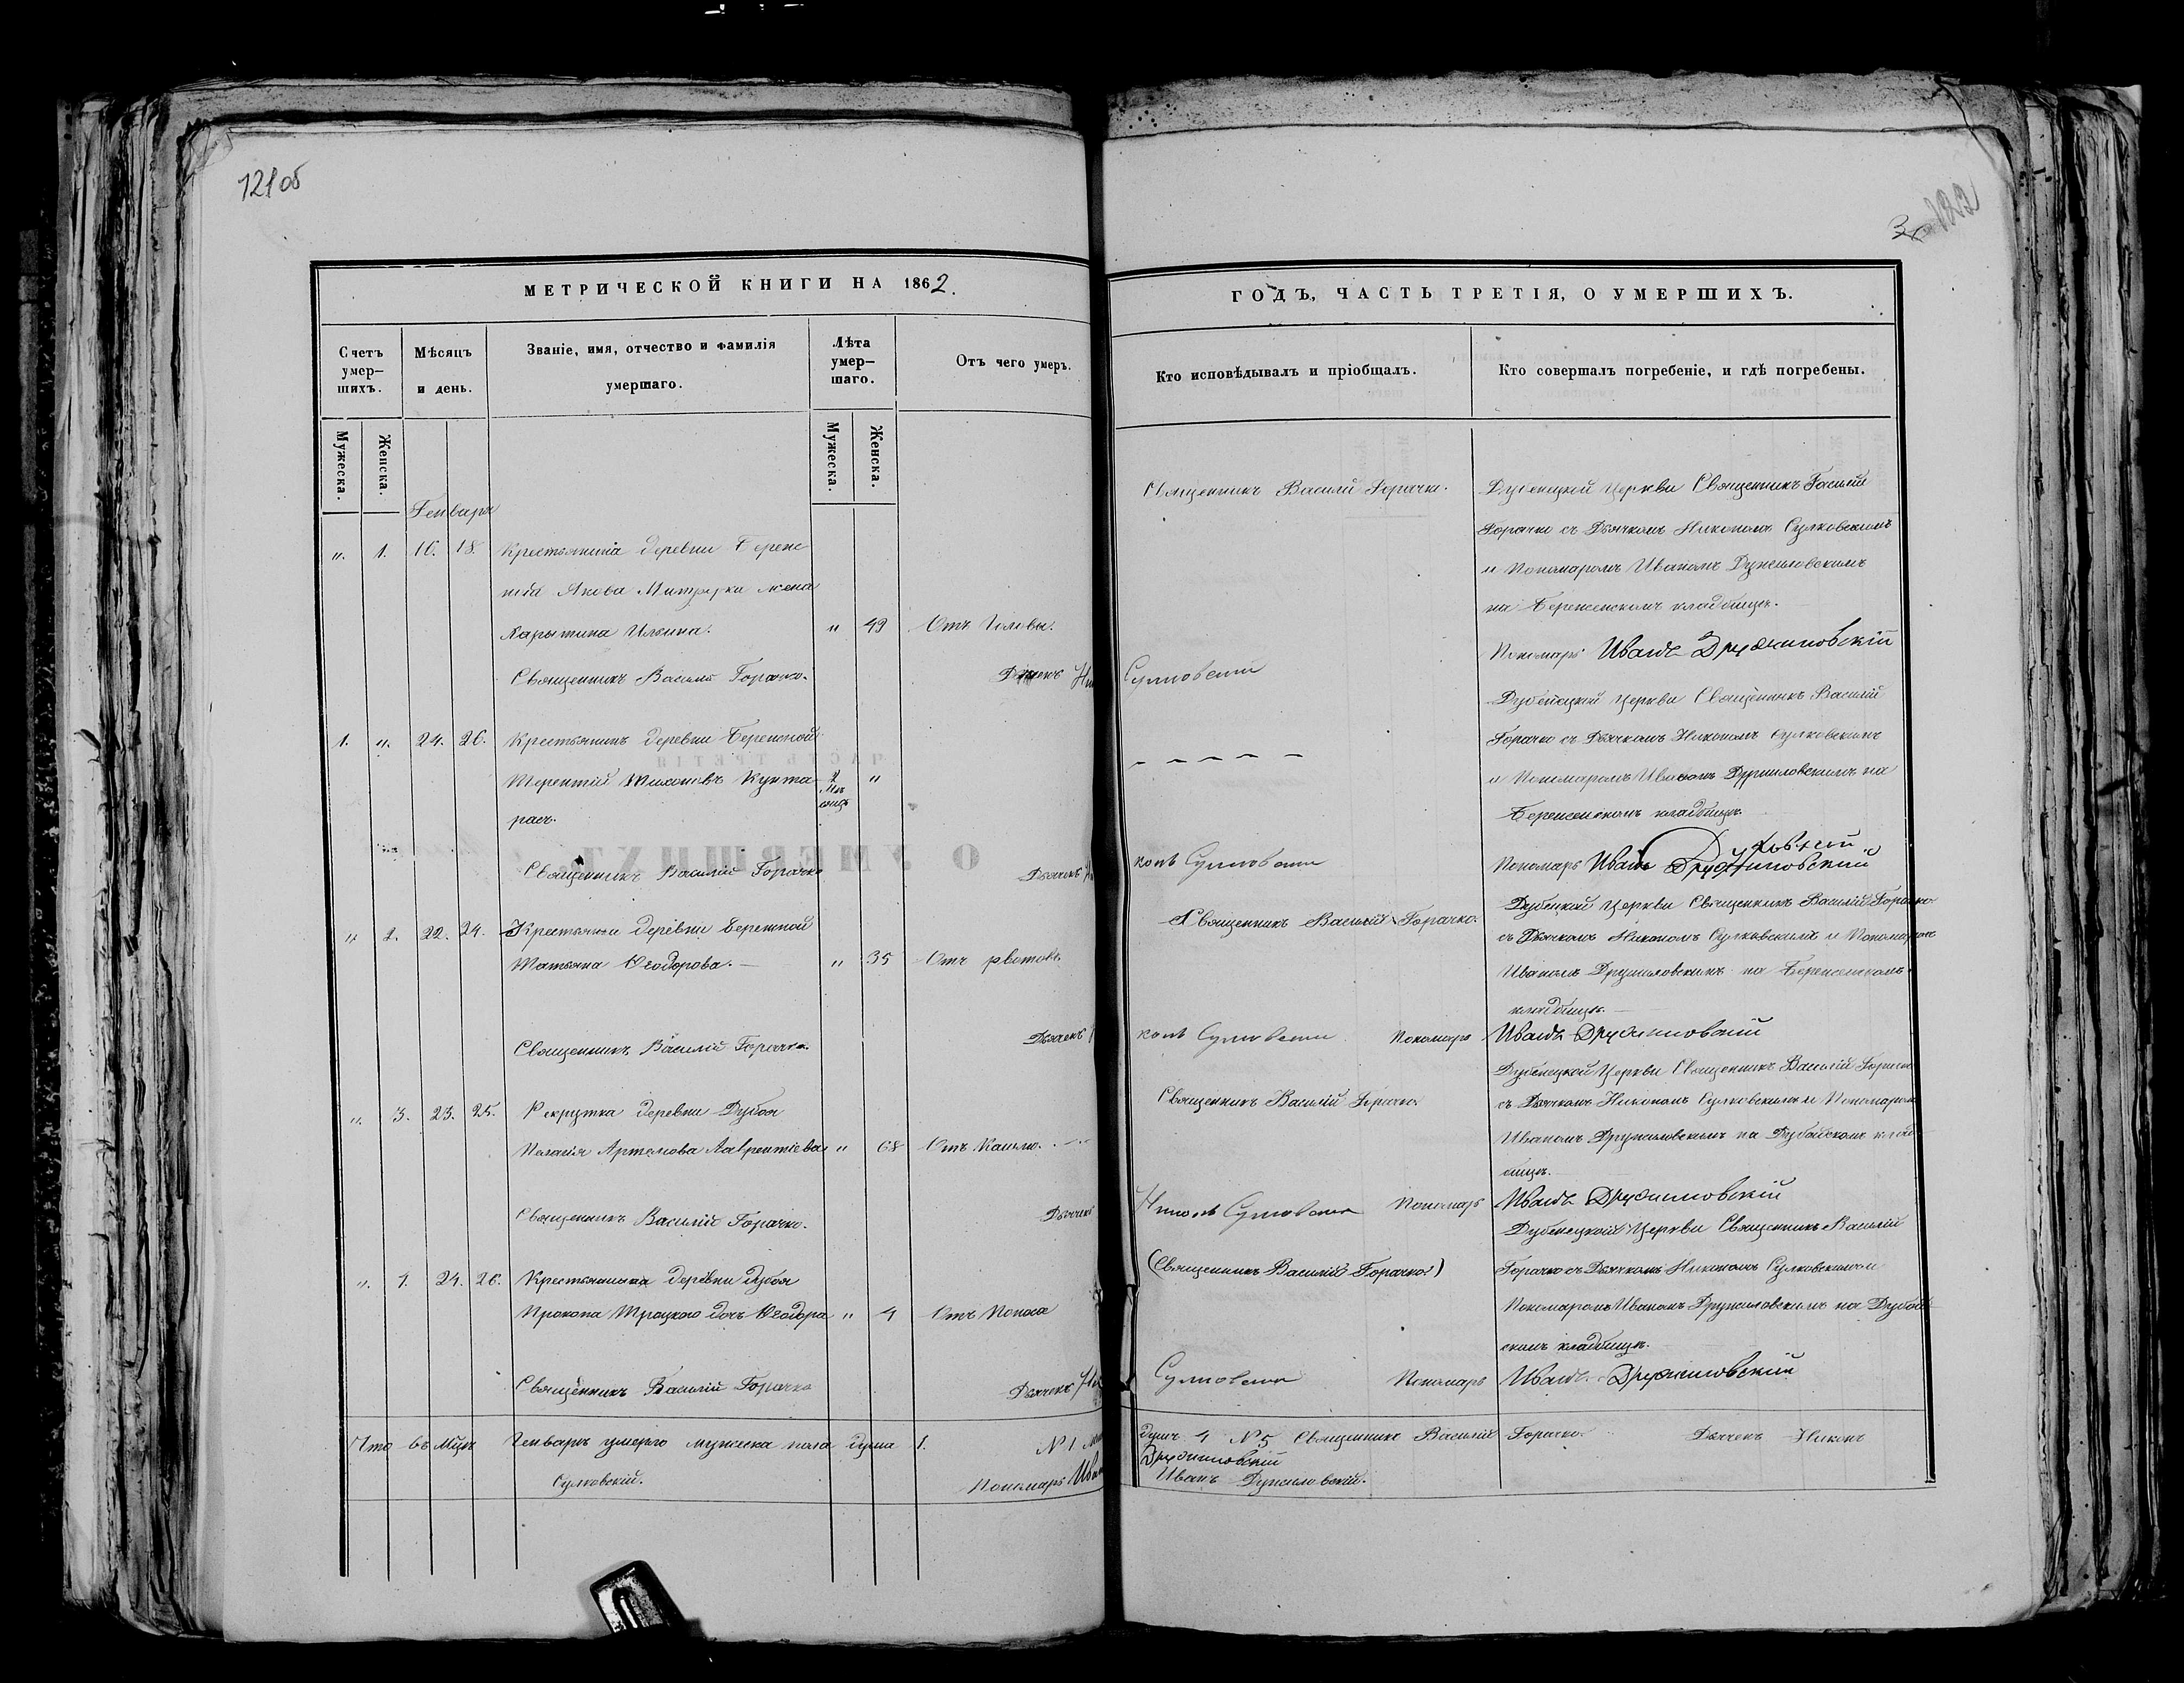 121 об
122
МЕТРИЧЕСКОЙ КНИГИ НА 1862.
ГОДЪ, ЧАСТЬ ТРЕТІЯ, О УМЕРШИХЪ.
Счетъ умер-шихъ.
Мѣсяцъ и день.
Званіе, имя, отчество и фамилія умершаго.
Лѣта умер-шаго.
Отъ чего умеръ.
Кто исповѣдывалъ и пріобщалъ.
Кто совершалъ погребеніе, и гдѣ погребены.
Мужеска.
Женска.
Мужеска.
Женска.
Генваря
„ 1. 16. 18. Крестьянина деревни Береж
ной Якова Митрука жена
Харытина Ильина. „ 49 Отъ
Священникъ Василій Горачко. Дьячекъ
Священникъ Василій Горачко.
Сулковскій
Дубенецкой Церкви Священникъ Василій
Горачко съ Дьячкомъ Никономъ Сулковскимъ
и Пономаромъ Иваномъ Дружиловскимъ
на Береженскомъ кладбищѣ.
Пономарь Иванъ Дружиловскій
1. „ 24. 26. Крестьянинъ деревни Бережной
Терентій Тихоновъ Кунта 2 „
расъ.
Священникъ Василій Горачко Дьячекъ
конъ Сулковскій
Дубенецкой Церкви Священникъ Василій
Горачко съ Дьячкомъ Никономъ Сулковскимъ
и Пономаромъ Иваномъ Дружиловскимъ на
Береженскомъ кладбищѣ.
Пономарь Иванъ Дружиловскій
„ 2. 22. 24. Крестьянка деревни Бережной
Татьяна Ѳеодорова. „ 35 Отъ рвотовъ.
Священникъ Василій Горачко. Дьячекъ
Священникъ Василій Горачко.
конъ Сулковскій Пономарь
Дубенецкой Церкви Священникъ Василій Горачко
съ Дьячкомъ Никономъ Сулковскимъ и Пономаромъ
Иваномъ Дружиловскимъ на Береженскомъ
кладбищѣ.
Иванъ Дружиловскій
„ 3. 23. 25. Рекрутка деревни Дубоя
Пелагія Артемова Лаврентіева „ 68 Отъ Кашлю.
Священникъ Василій Горачко. Дьячекъ
Священникъ Василій Горачко.
Никонъ Сулковскій Пономарь
Дубенецкой Церкви Священникъ Василій Горачко
съ Дьячкомъ Никономъ Сулковскимъ и Пономаромъ
Иваномъ Дружиловскимъ на Дубойскомъ клад
бищѣ.
Иванъ Дружиловскій
„ 4. 24. 26. Крестьянина деревни Дубоя
Прокопа Троцкого дочь Ѳеодора „ 4 Отъ Поноса
Священникъ Василій Горачко Дьячекъ
(Священникъ Василій Горачко)
Сулковскій Пономарь
Дубенецкой Церкви Священникъ Василій
Горачко съ Дьячкомъ Никономъ Сулковскимъ и
Пономаромъ Иваномъ Дружиловскимъ на Дубой
скомъ кладбищѣ.
Иванъ Дружиловскій
Что въ Мцѣ Генварѣ умерло мужеска пола душа 1. № 1
душъ 4 № 5 Священникъ Василій Горачко Дьячекъ Никонъ
Сулковскій. Пономарь
Дружиловскій
Иванъ Дружиловскій.